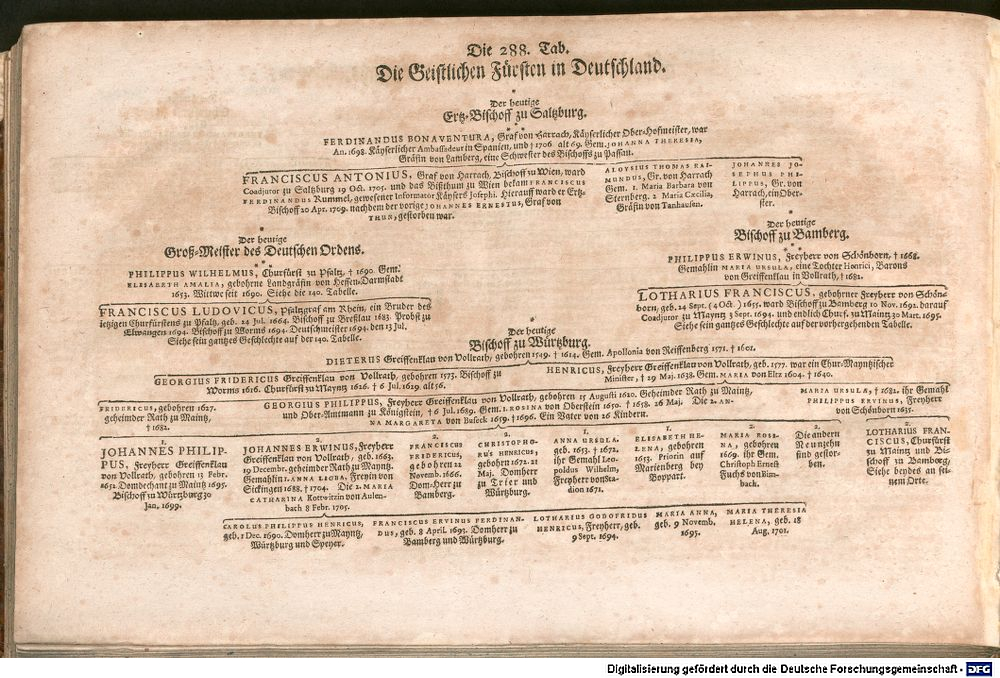 Die 288. Tab.
Die Geistlichen Fürsten in Deutschland.
Der heutige
Ertz-Bischoff zu Saltzburg.
FERDINANDUS BONAVENTURA, Graf von Harrach, Käyserlicher Ober-Hofmeister, war
An. 1698. Käyserlicher Ambassadeur in Spanien, und † 1706 alt 69. Gem. JOHANNA THERESIA,
Gräfin von Lamberg, eine Schwester des Bischoffs zu Passau.
FRANCISCUS ANTONIUS, Graf von Harrach, Bischoff zu Wien, ward
Coadjutor zu Saltzburg 19 Oct. 1705. und das Bisthum zu Wien bekam FRANCISCUS
FERDINANDUS Rummel, gewesener Informator Käysers Josephi. Hierauff ward er Ertz-
Bischoff 20 Apr. 1709. nachdem der vorige JOHANNES ERNESTUS, Graf von
THUN, gestorben war.
ALOYSIUS THOMAS RAI-
MUNDUS, Gr. von Harrach
Gem. 1. Maria Barbara von
Sternberg. 2 Maria Cæcilia,
Gräfin von Tanhausen.
JOHANNES JO-
SEPHUS PHI-
LIPPUS, Gr. von
Harrach, ein Ober-
ster.
Der heutige
Groß-Meister des Deutschen Ordens.
PHILIPPUS WILHELMUS, Churfürst zu Pfaltz, † 1690. Gem.
ELISABETH AMALIA, gebohrne Landgräfin von Hessen-Darmstadt
1653. Wittwe seit 1690. Siehe die 140. Tabelle.
FRANCISCUS LUDOVICUS, Pfaltzgraf am Rhein, ein Bruder des
ietzigen Churfürstens zu Pfaltz, geb. 24 Jul. 1664. Bischoff zu Breßlau 1683. Probst zu
Elwangen 1694. Bischoff zu Worms 1694. Deutschmeister 1694. den 13 Jul.
Siehe sein gantzes Geschlechte auf der 140. Tabelle.
Der heutige
Bischoff zu Bamberg.
PHILIPPUS ERWINUS, Freyherr von Schönborn, † 1668.
Gemahlin MARIA URSULA, eine Tochter Henrici, Barons
von Greiffenklau in Vollrath, † 1682.
LOTHARIUS FRANCISCUS, gebohrner Freyherr von Schön-
born, geb. 24 Sept. (4 Oct.) 1655. ward Bischoff zu Bamberg 10 Nov. 1692. darauf
Coadjutor zu Mayntz 3 Sept. 1694. und endlich Churf. zu Mayntz 30 Mart. 1695.
Siehe sein gantzes Geschlechte auf der vorhergehenden Tabelle.
Der heutige
Bischoff zu Würtzburg.
DIETERUS Greiffenklau von Vollrath, gebohren 1549. † 1614. Gem. Apollonia von Reiffenberg 1571. † 1601.
GEORGIUS FRIDERICUS Greiffenklau von Vollrath, gebohren 1573. Bischoff zu
Worms 1616. Churfürst zu Mayntz 1626. † 6 Jul. 1629. alt 56.
HENRICUS, Freyherr Greiffenklau von Vollrath, geb. 1577. war ein Chur-Mayntzischer
Minister, † 29 Maj. 1638. Gem. MARIA von Eltz 1604. † 1640.
FRIDERICUS, gebohren 1627.
geheimder Rath zu Maintz,
† 1682.
GEORGIUS PHILIPPUS, Freyherr Greiffenklau von Vollrath, gebohren 15 Augusti 1620. Geheimder Rath zu Maintz,
und Ober-Amtmann zu Königstein, † 6 Jul. 1689. Gem. 1. ROSINA von Oberstein 1650. † 1658. 26 Maj. Die 2. AN-
NA MARGARETA von Buseck 1659. † 1696. Ein Vater von 26 Kindern.
MARIA URSULA, † 1682. ihr Gemahl
PHILIPPUS ERVINUS, Freyherr
von Schönborn 1635.
1.
JOHANNES PHILIP-
PUS, Freyherr Greiffenklau
von Vollrath, gebohren 13 Febr.
1652. Domdechant zu Maintz 1695.
Bischoff zu Würtzburg 30
Jan. 1699.
2.
JOHANNES ERWINUS, Freyherr
Greiffenklau von Vollrath, geb. 1663.
19 Decembr. geheimder Rath zu Mayntz.
Gemahlin 1. ANNA LIOBA, Freyin von
Sickingen 1688. † 1704. Die 2. MARIA
CATHARINA Kottwitzin von Aulen-
bach 8 Febr. 1705.
2.
FRANCISCUS
FRIDERICUS,
gebohren 12
Novemb. 1666.
Dom-Herr zu
Bamberg.
2.
CHRISTOPHO-
RUS HENRICUS,
gebohren 1672. 21
Maj. Domherr
zu Trier und
Würtzburg.
1.
ANNA URSULA.
geb. 1653. † 1672.
ihr Gemahl Leo-
poldus Wilhelm,
Freyherr von Sta-
dion 1671.
1.
ELISABETH HE-
LENA, gebohren
1655. Priorin auf
Marienberg bey
Boppart.
2.
MARIA ROSI-
NA, gebohren
1669. ihr Gem.
Christoph Ernest
Fuchs von Bim-
bach.
2.
Die andern
Neunzehn
sind gestor-
ben.
2.
LOTHARIUS FRAN-
CISCUS, Churfürst
zu Maintz und Bi-
schoff zu Bamberg,
Siehe beydes an sei-
nem Orte.
CAROLUS PHILIPPUS HENRICUS,
geb. 1 Dec. 1690. Domherr zu Mayntz,
Würtzburg und Speyer.
FRANCISCUS ERVINUS FERDINAN-
DUS, geb. 8 April. 1693. Domherr zu
Bamberg und Würtzburg.
LOTHARIUS GODOFRIDUS
HENRICUS, Freyherr, geb.
9 Sept. 1694.
MARIA ANNA,
geb. 9 Novemb.
1695.
MARIA THERESIA
HELENA, geb. 18
Aug. 1701.
Digitalisierung gefördert durch die Deutsche Forschungsgemeinschaft - DFG